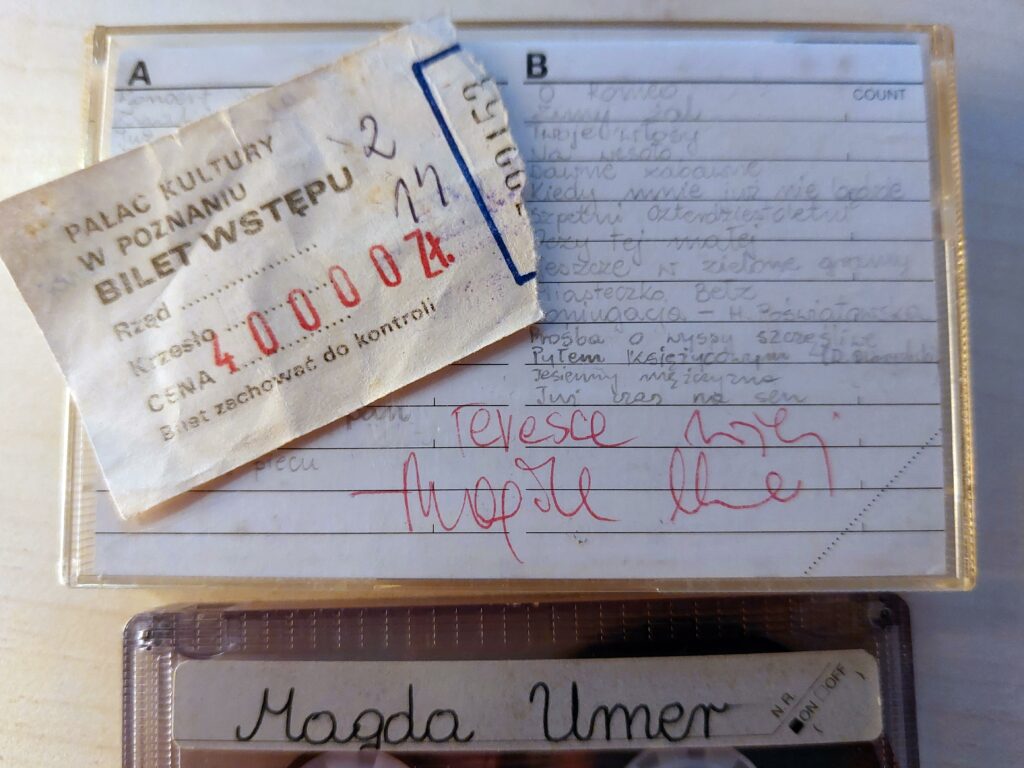 PAŁAC KULTURY
W POZNANIU
BILET WSTĘPU
Rząd
2
Krzesło
CENA 40000 ZŁ.
Bilet zachować do kontroli
A
B
COUNT
O Romeo
Zimny żal
Twoje włosy
Dawne zabawne
Kiedy mnie już nie będzie
Szpetni czterdziestoletni
Oczy tej małej
Deszcze w zielone gramy
Miasteczko Bełz
Koniugacja - H. Poświatowska
Prośba o wyspy szczęśliwe
Pyłem księżycowym
Jesienny mężczyzna
Już czas na sen
pan
piecu
Teresce
Magda Umer
Magda Umer
N.R.
ON OFF